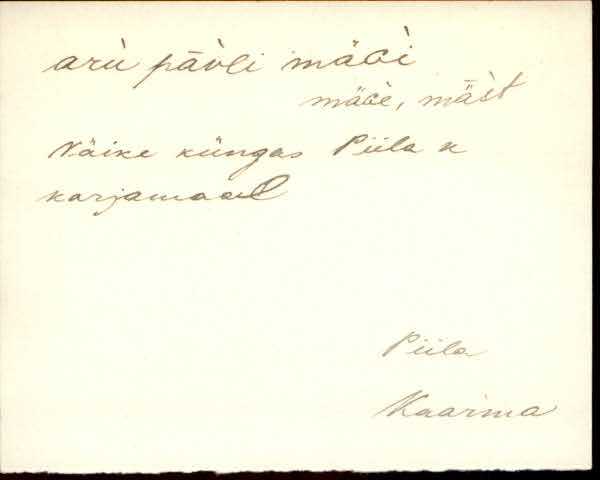 arù pàvli mäGi
mäGe, mäst
Väike küngas Piila k
karjamaal
Piila
Kaarma